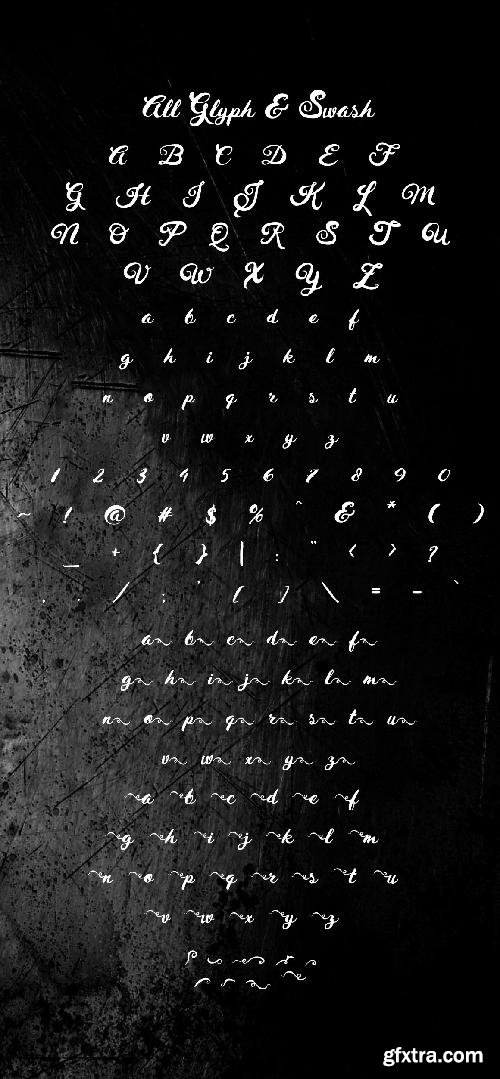 All Glyph & Swash
A B C D E F
G H I J K L M
N O P Q R S T U
V W X Y Z
a b c d e f
g h i j k l m
n o p q r s t u
v w x y z
1 2 3 4 5 6 7 8 9 0
~ ! @ # $ % ^ & * ( )
_ + { } | : " < > ?
, . / ; ' [ ] \ = - `
a b c d e f
g h i j k l m
n o p q r s t u
v w x y z
a b c d e f
g h i j k l m
n o p q r s t u
v w x y z
gfxtra.com